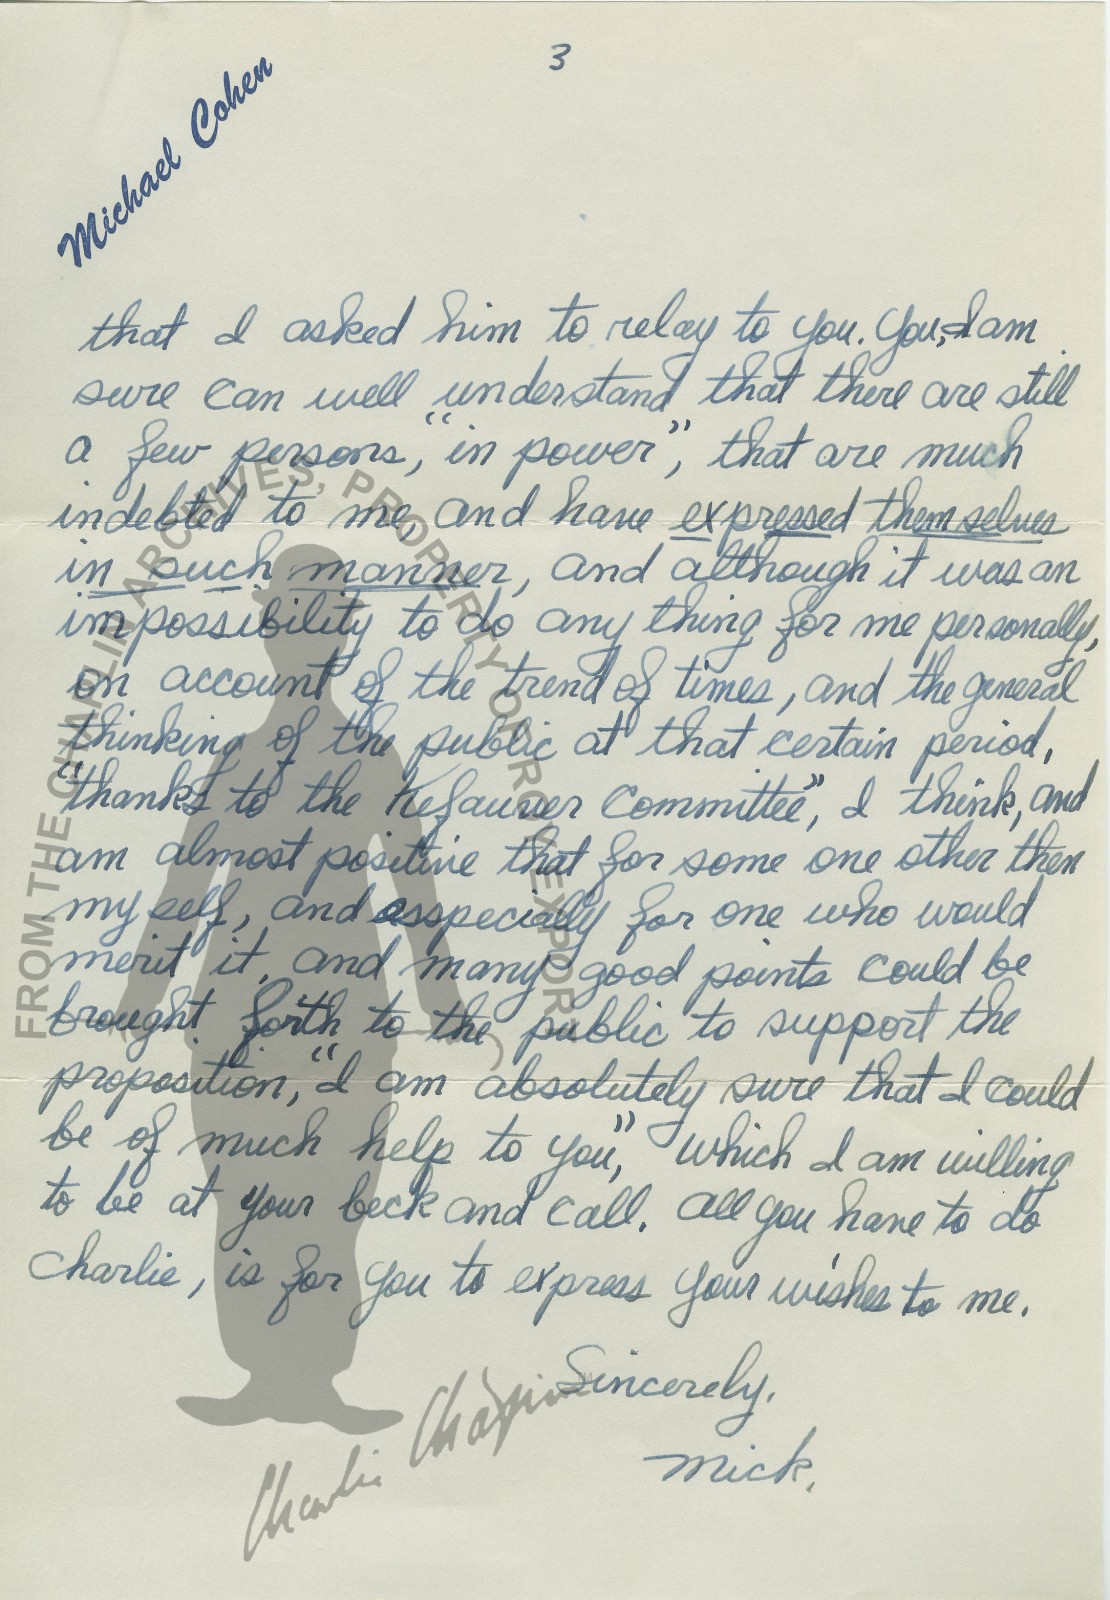 3
Michael Cohen
that I asked him to relay to you. You, I am
sure can well understand that there are still
a few persons, "in power", that are much
indebted to me, and have expressed themselves
in such manner, and although it was an
impossibility to do any thing for me personally,
on account of the trend of times, and the general
thinking of the public at that certain period,
"thanks to the Kefauver Committee", I think, and
am almost positive that for some one other then
my self, and asspecially for one who would
merit it, and many good points could be
brought forth to the public to support the
proposition, "I am absolutely sure that I could
be of much help to you", which I am willing
to be at your beck and call. All you have to do
Charlie, is for you to express your wishes to me.
Sincerely,
Mick.
FROM THE CHAPLIN ARCHIVES, PROPERTY OF ROY EXPORT
Charlie Chaplin